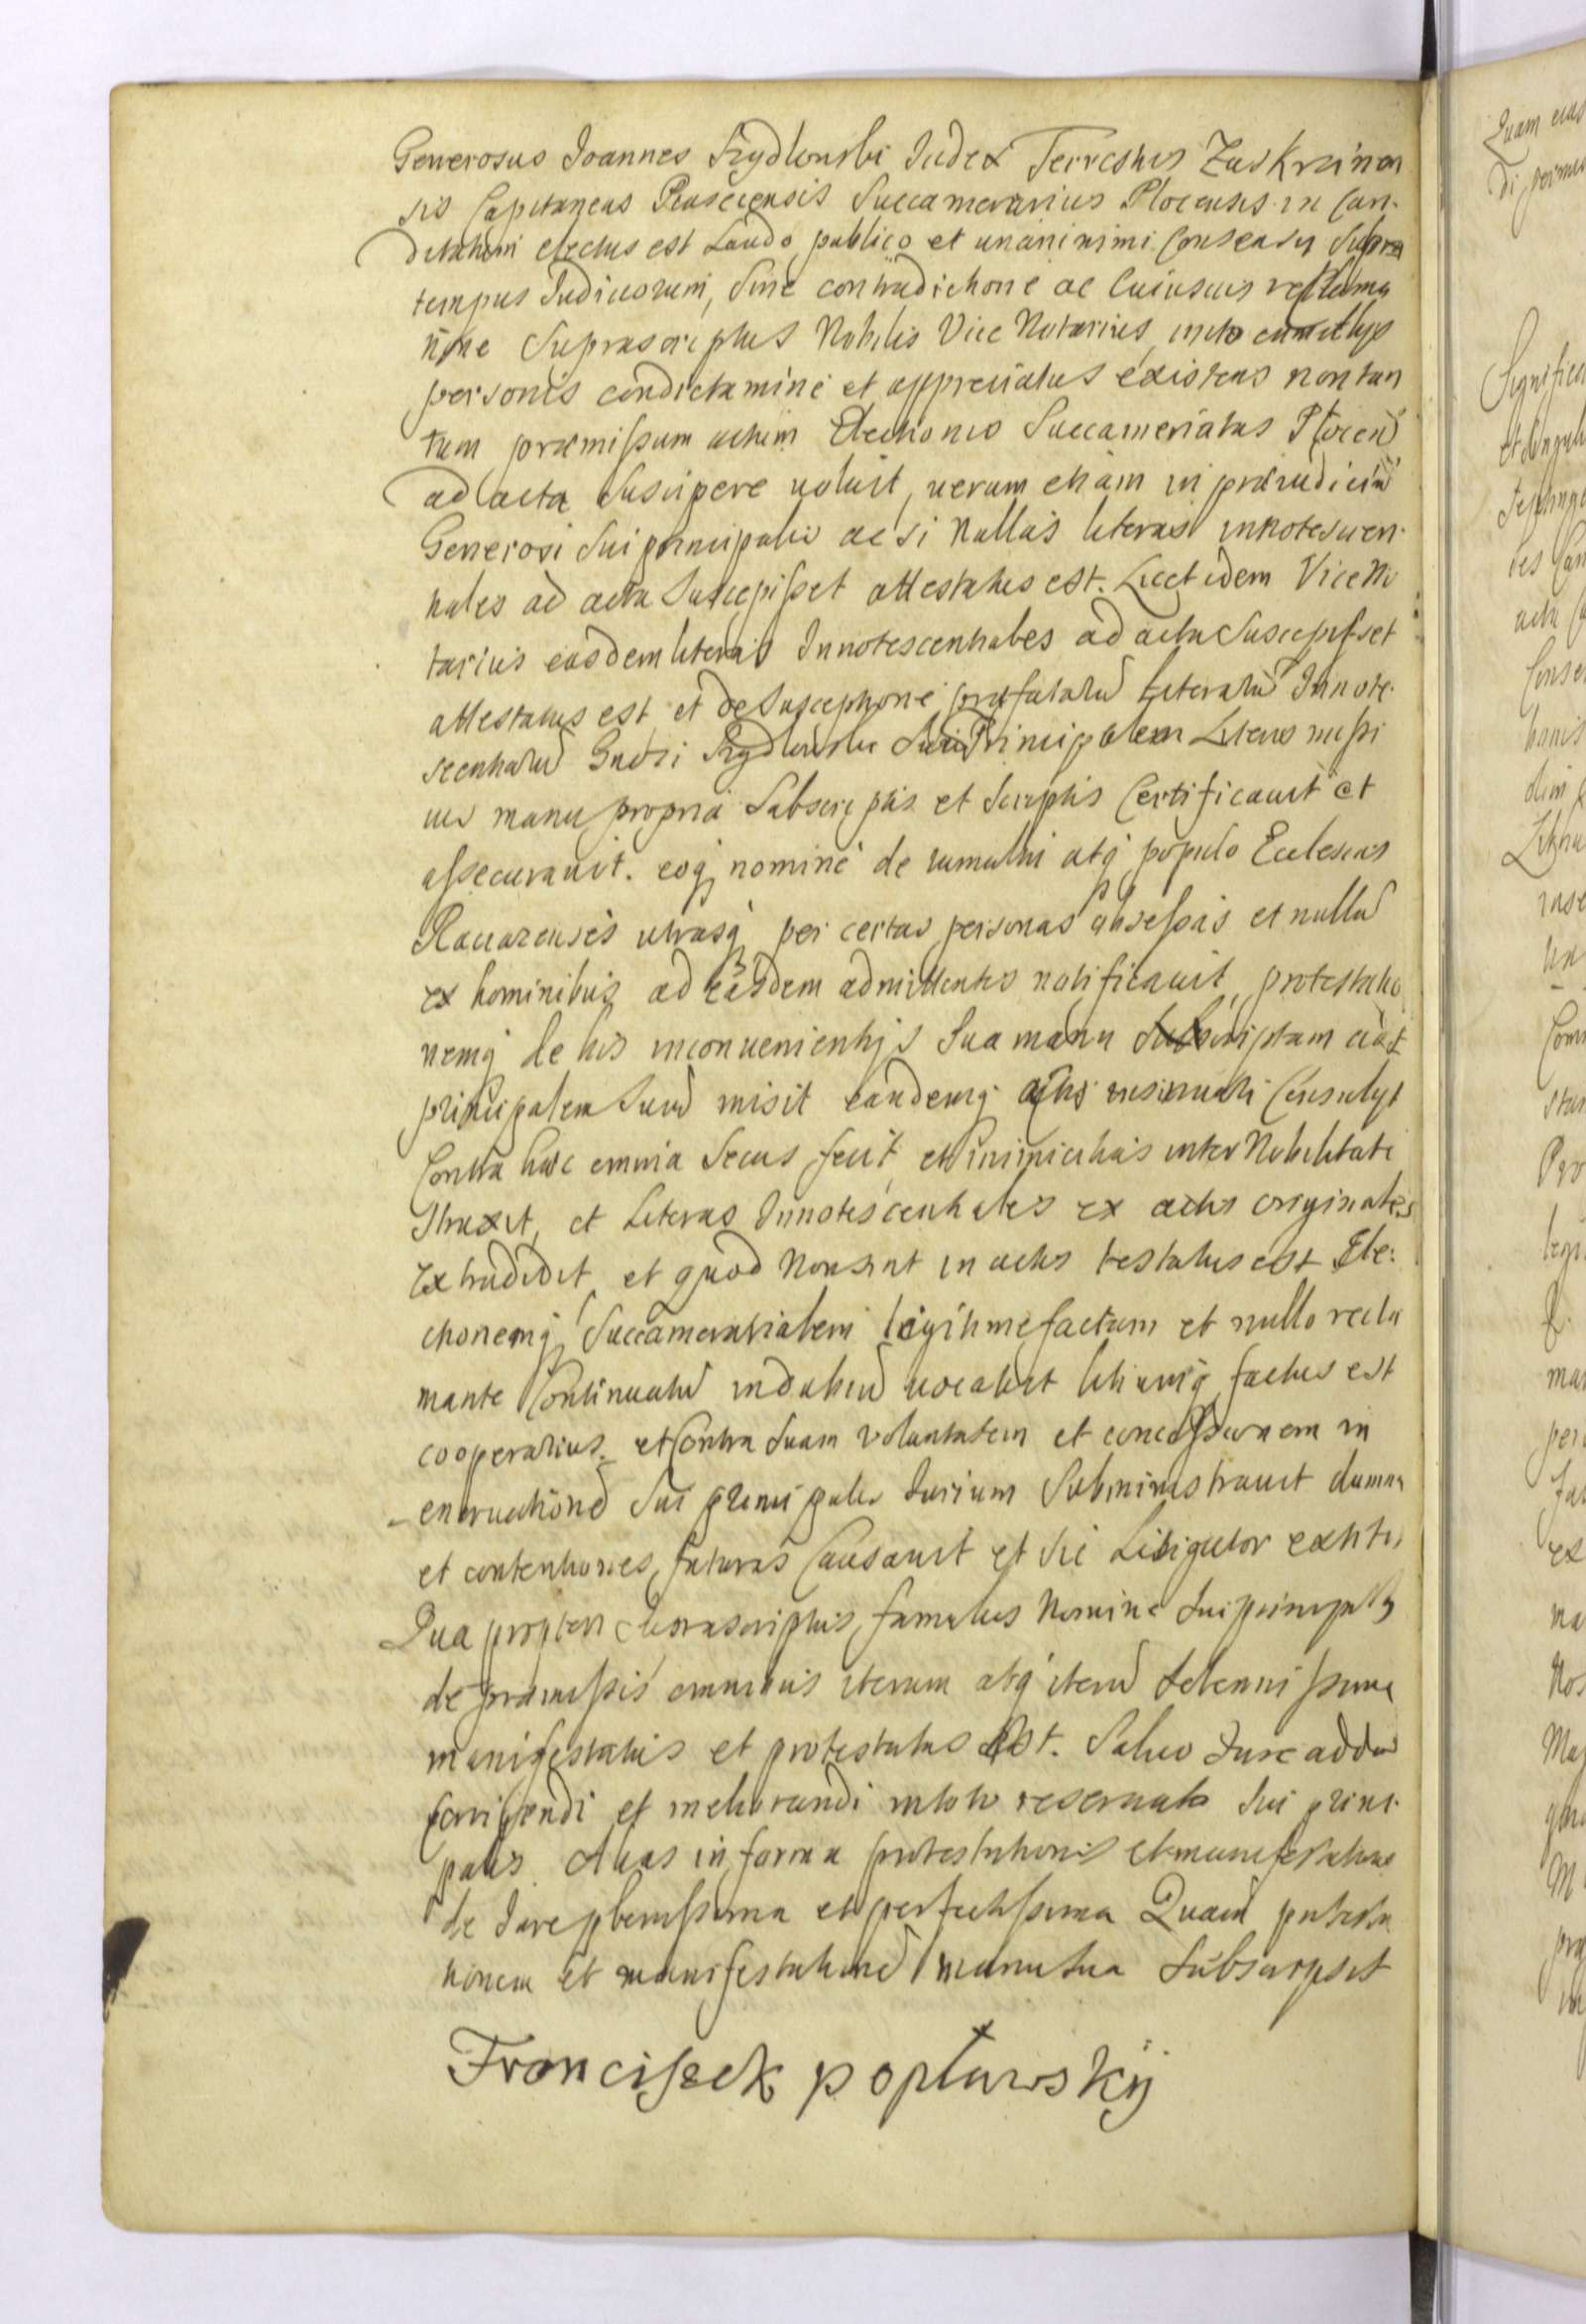 Generosus Joannes Szydłowski Judex Terrestris Zaskrzinen
sis Capitaneus Ploscensis Succamerarius Plocensis in Can-
ditatum electus est Laudo publico et unaninimi Consensu supra
tempus Judiciorum, Sine contradictione ac Cuiusuis reclama
tione Suprascriptus Nobilis Vice Notarius, inito cum illys
personis condictamine et appreciatus existens non tan
tum præmissum actum Electionis Succameriatus Plocen
ad acta Suscipere noluit, uerum etiam in præiudiciū
Generosi Sui principalis ac si Nullas literas innotescen-
tiales ad acta Suscepisset attestatus est. Licet idem Vice No
tarius easdem literas Innotescentiales ad acta Suscepisset
attestatus est et de Susceptione præfatarū Literarū Innote-
scentiarū Gnosi Szydłowski Sui Principalem Literis missi
uis manu propria Subscriptis et Scriptis Certificauit et
assecurauit. eoq nomine de tumultu atq populo Ecclesias
Raciazenses utrasq per certas personas obsessas et nullū
ex hominibus ad easdem admittentes notificauit, protestatio
nemq de his inconuenientijs Sua manu Subscriptam ad
principalem Suū misit eandemq actis insinuari Consuluit
Contra hæc omnia Secus fecit et inimicitias inter Nobilitate
Struxit, et Literas Innotescentiales ex actis originales
Extradidit, et quod Non sint in actis testatus est Ele-
ctionemq Succamerarialem legitime factam et nullo recla
mante Continuatū in dubiū uocauit litiumq factus est
cooperarius. et Contra Suam voluntatem et concessionem in
eneruationē Sui principalis Jurium Subministrauit damna
et contentiones futuras Causauit et sic Litigator extitit
Qua propter Suprascriptus famulus Nomine Sui principalis
de præmissis omnibus iterum atq iterū Solennissime
manifestatus et protestatus est. Saluo Jure adden
Corrigendi et meliorandi in toto reseruato Sui princi-
palis. Alias in forma protestationis et manifestationis
de Jure plenissima et perfectissima Quam protesta
tionem et manifestationē manu Sua Subscripsit
Franciszek popławskÿ